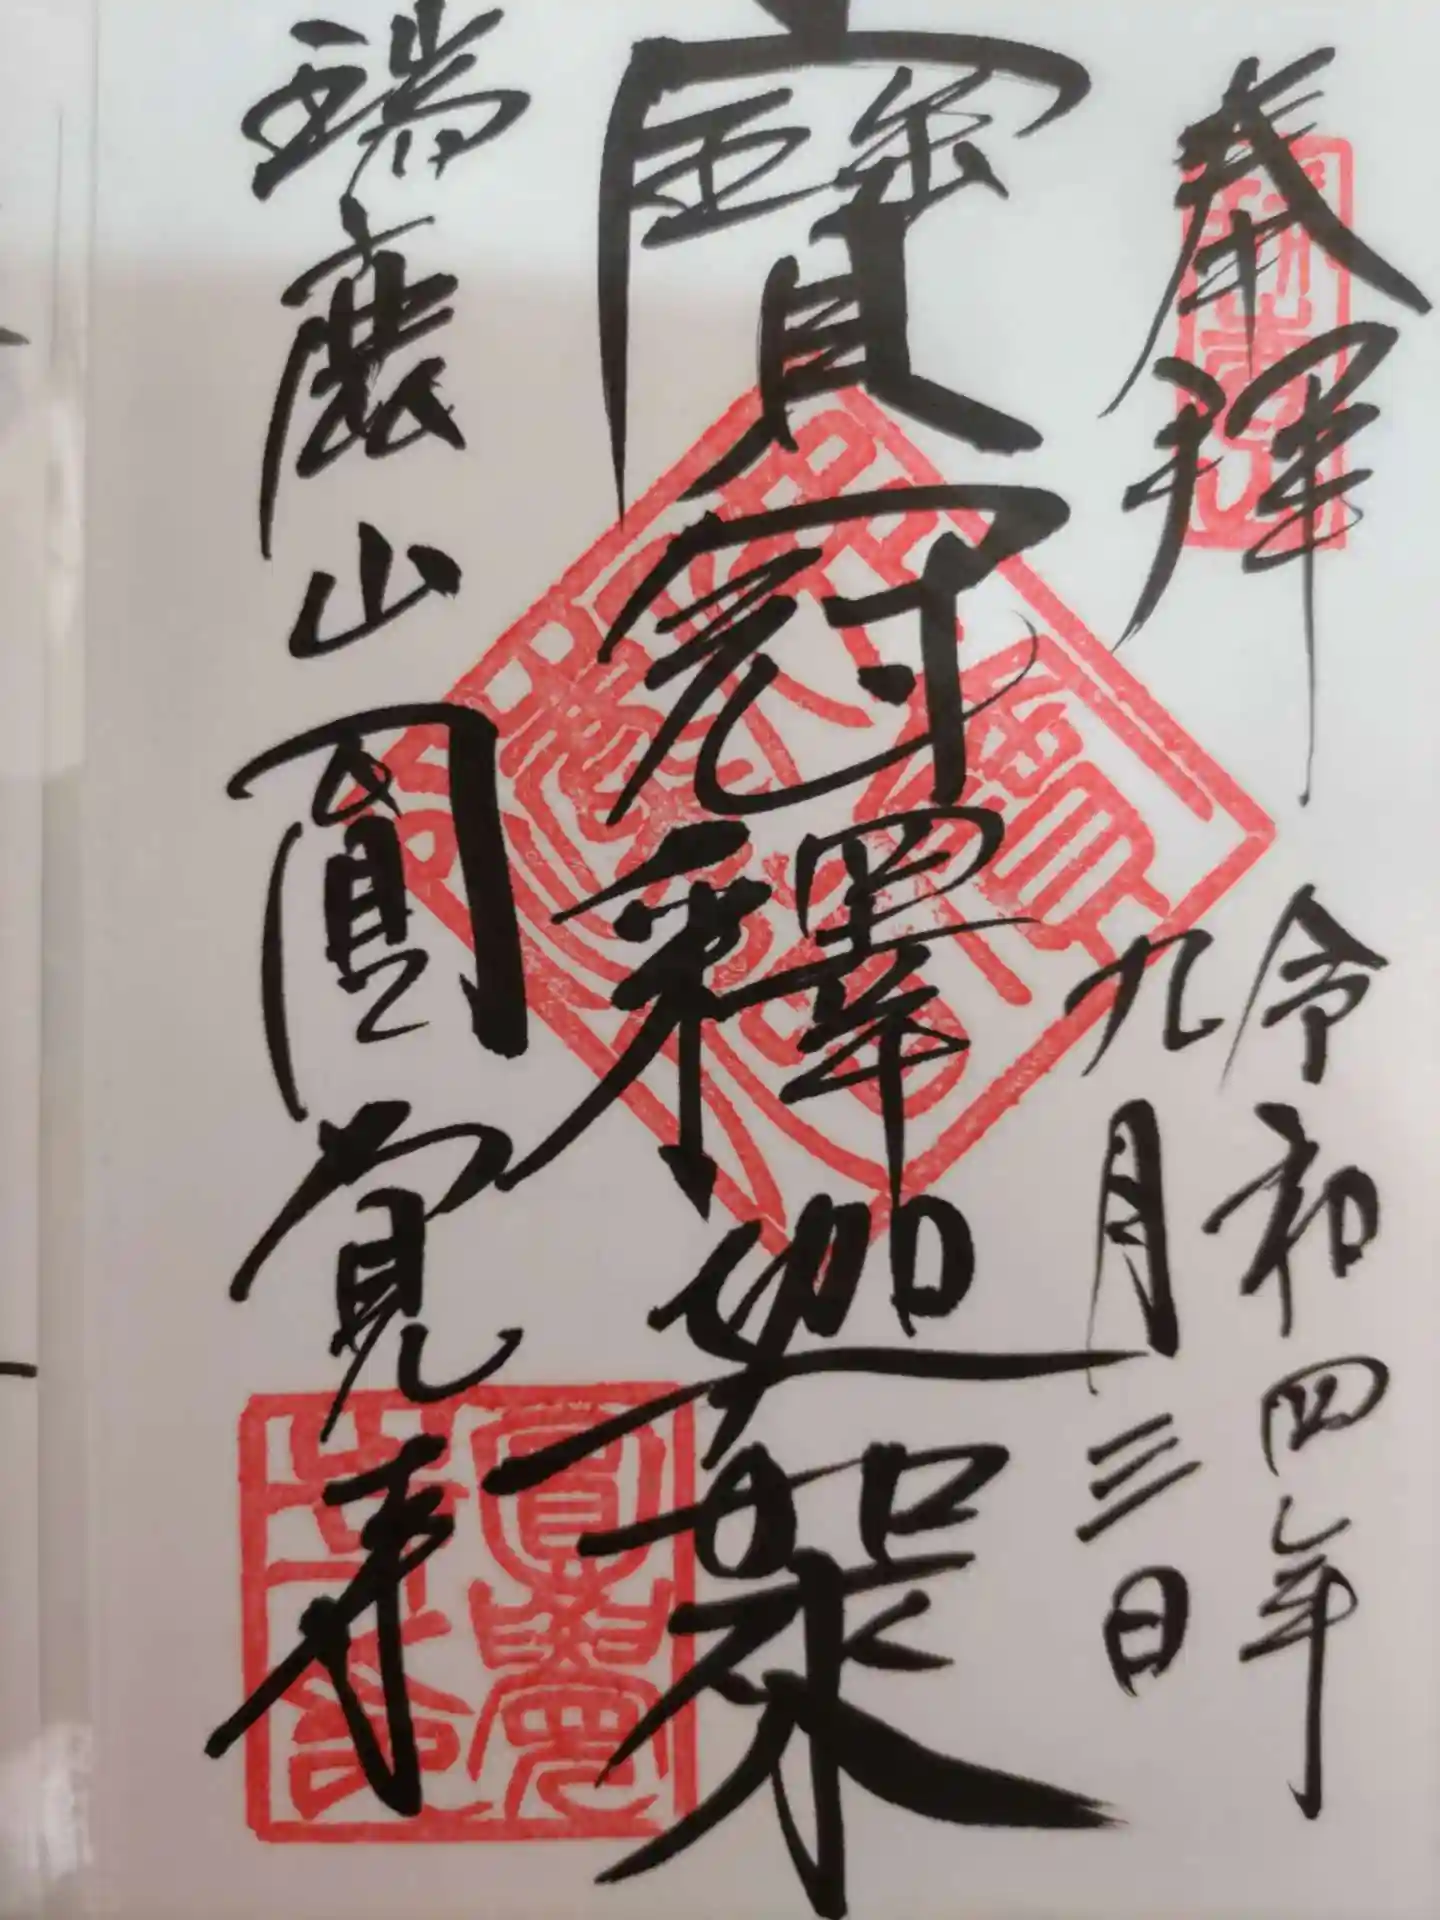 奉拝
令和四年
九月三日
寶冠釋迦如来
瑞鹿山圓覚寺